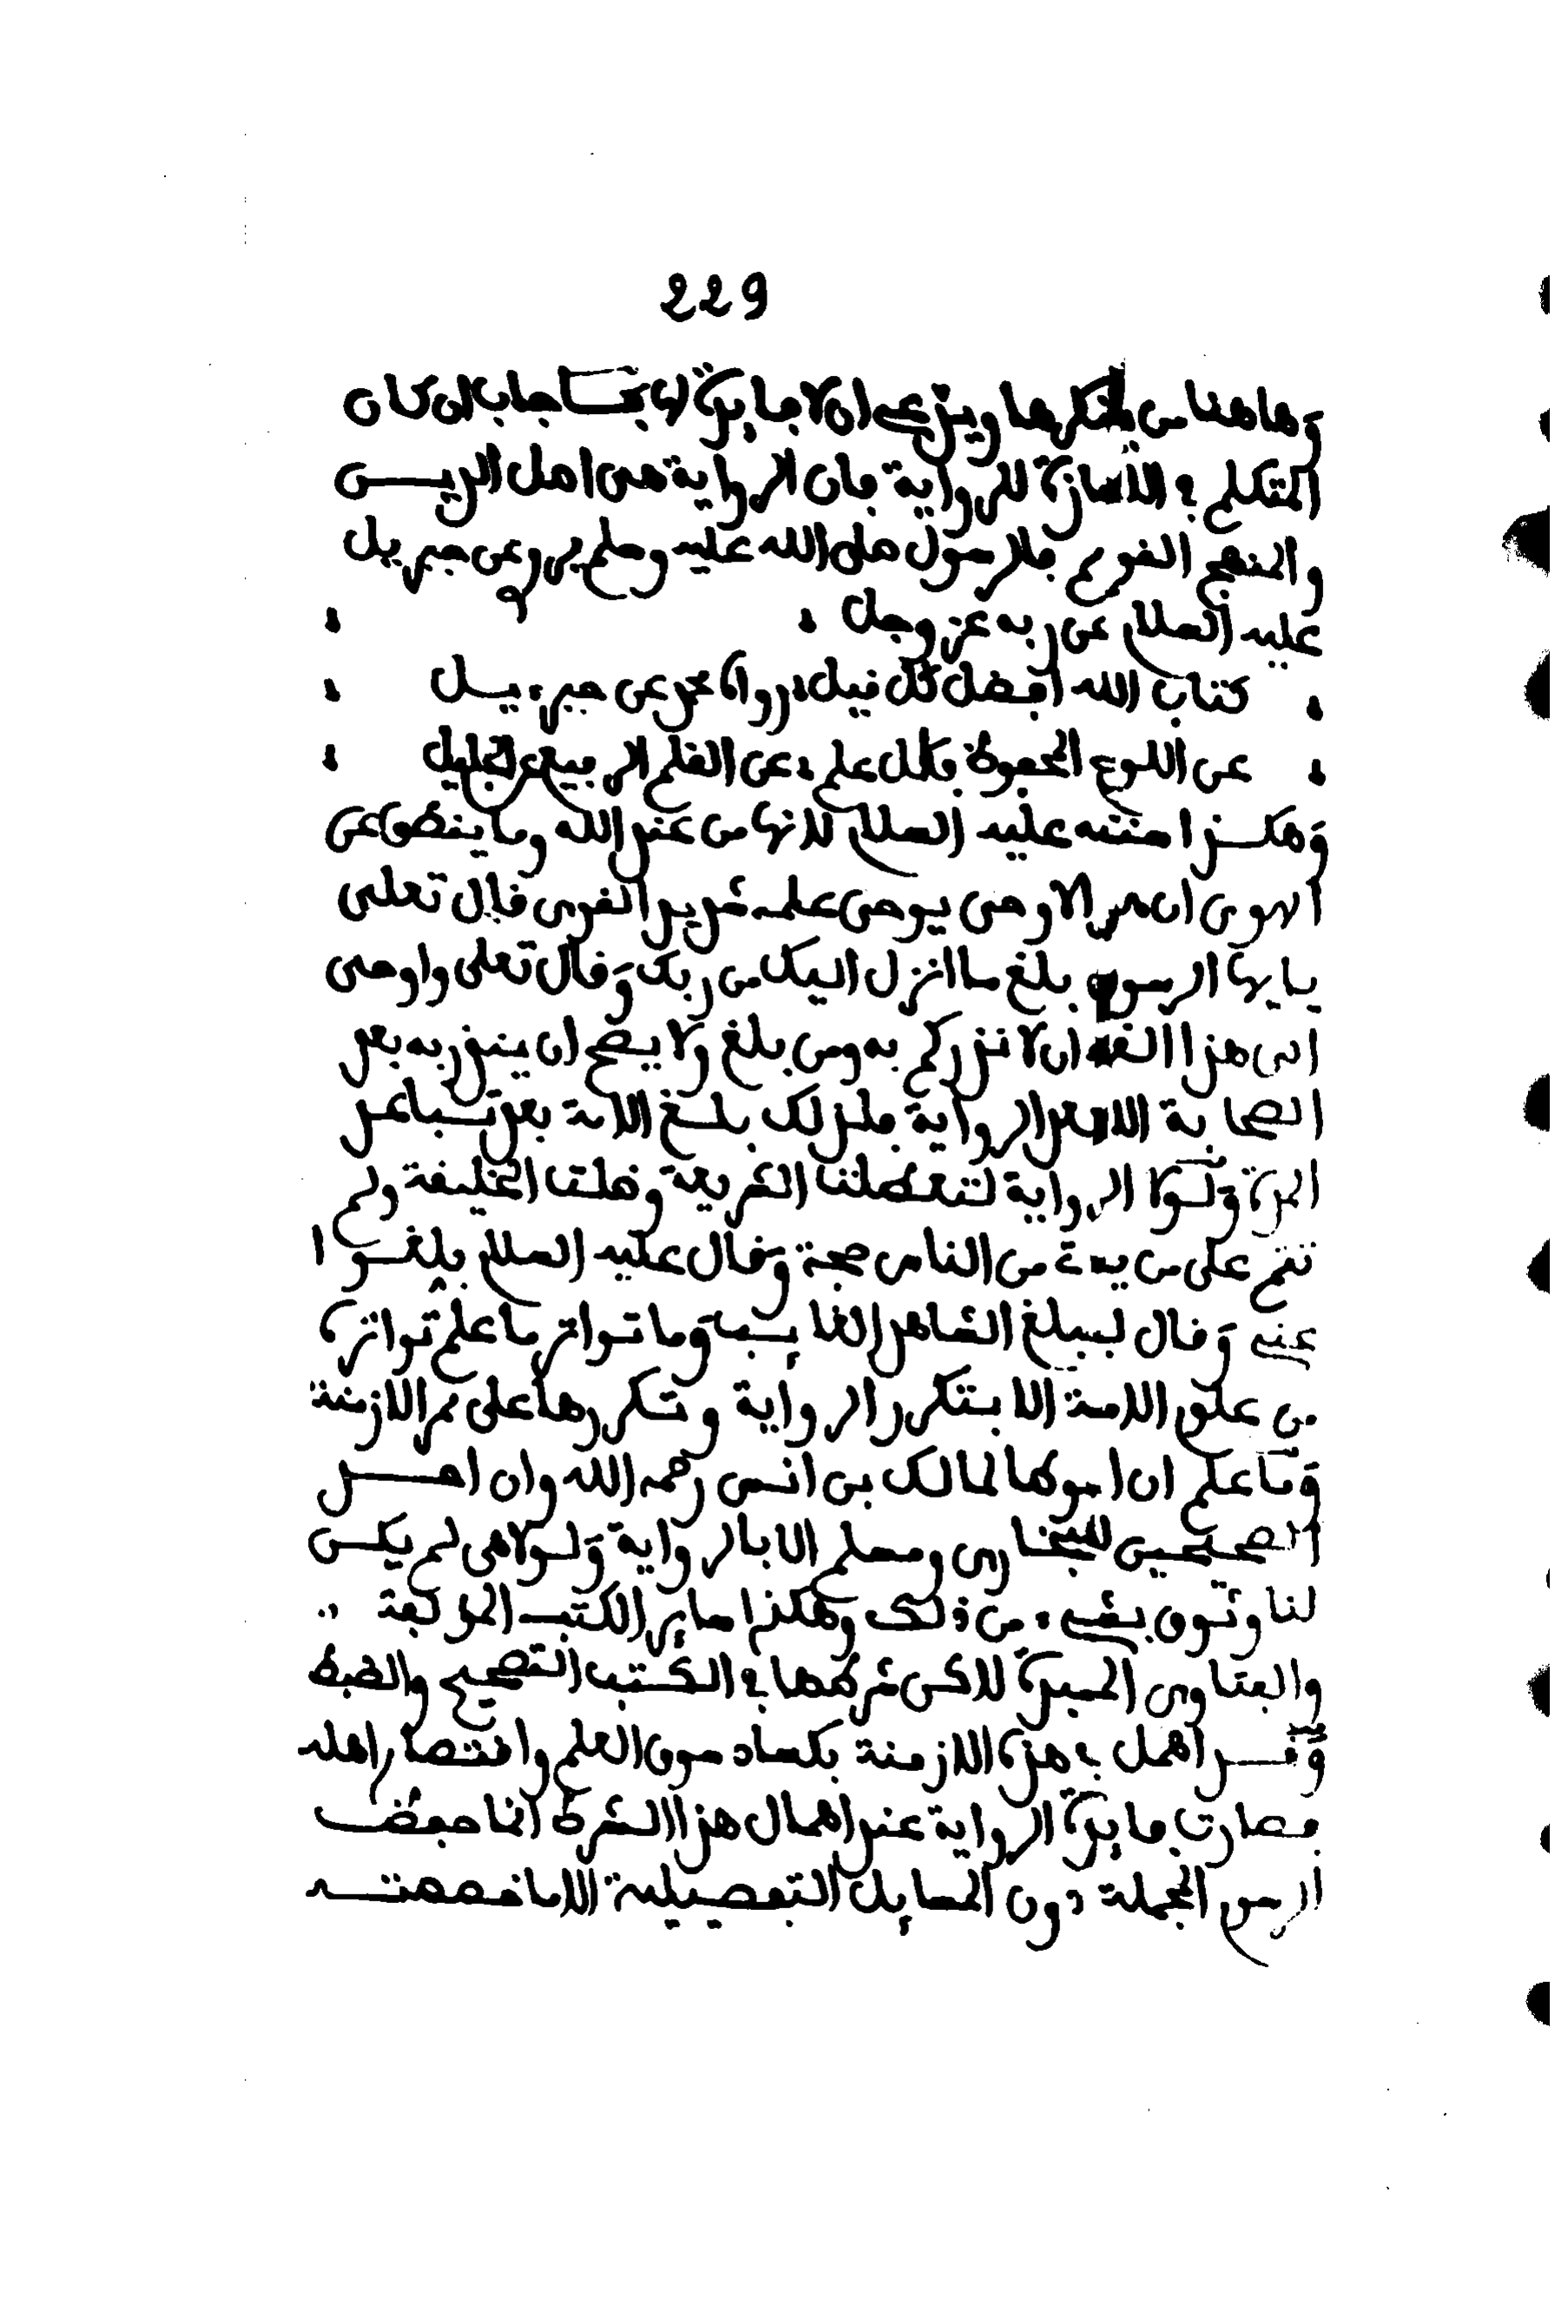 229
وهاهنا من انكرها ويزعم ان لا فايدة لها بحا جاب ان كان
المتكلم في الاجازة للرواية فان الرواية هى اهل الديـــن
والمنهج القويم فالرسول صلى الله عليه وسلم يروى عن جبريل
عليه السلام عن ربه عز وجل
كتاب الله افضل كل قيل رواه محمد عن جبرءيـــل
عن اللوح المحفوظ بكل علم عن القلم الرفيع عن الجليل
وهكـذا سنته عليه السلام لانها من عند الله وما ينطق عن
الهوى ان هو الا وحى يوحى علمه شديد القوى قال تعلى
يايها الرسول بلغ ما انزل اليك من ربك وقال تعلى واوحى
الى هذا القرءان لانذركم به ومن بلغ ولا يصح ان ينذر به بعد
الصحابة الا بعد الرواية فلذلك بلـغ الامة بعد تباعد
المدة ولـولا الرواية لتعطلت الشريعة وضلت الخليفة ولم
تقم على من يءت من الناس حجة وقال عليه السلام بلغــوا
عنى وقال ليبلغ الشاهد الغايب وما تواتر ما علم تواتره
من علوم الامة الا بتكرر الرواية وتكررها على مر الازمنة
وما علم ان الموطا لمالك بن انس رحمه الله وان احـــد
الصحيحين للبخارى ومسلم الا بالرواية ولـولا هى لم يكـن
لنا وثوق بشىء من ذلك وهكذا ساير الكتب المؤلفة
والفتاوى المفيدة لاكن شرطها في الكتب التصحيح والضبط
وقــد اهمل في هذه الازمنة بكساد سوق العلم واقتصار اهله
فصارت فايدة الرواية عند اهمال هذا الشرط انما حفظت
الرسوم الجملة دون المسايل التفصيلية الا ما ضممتــه